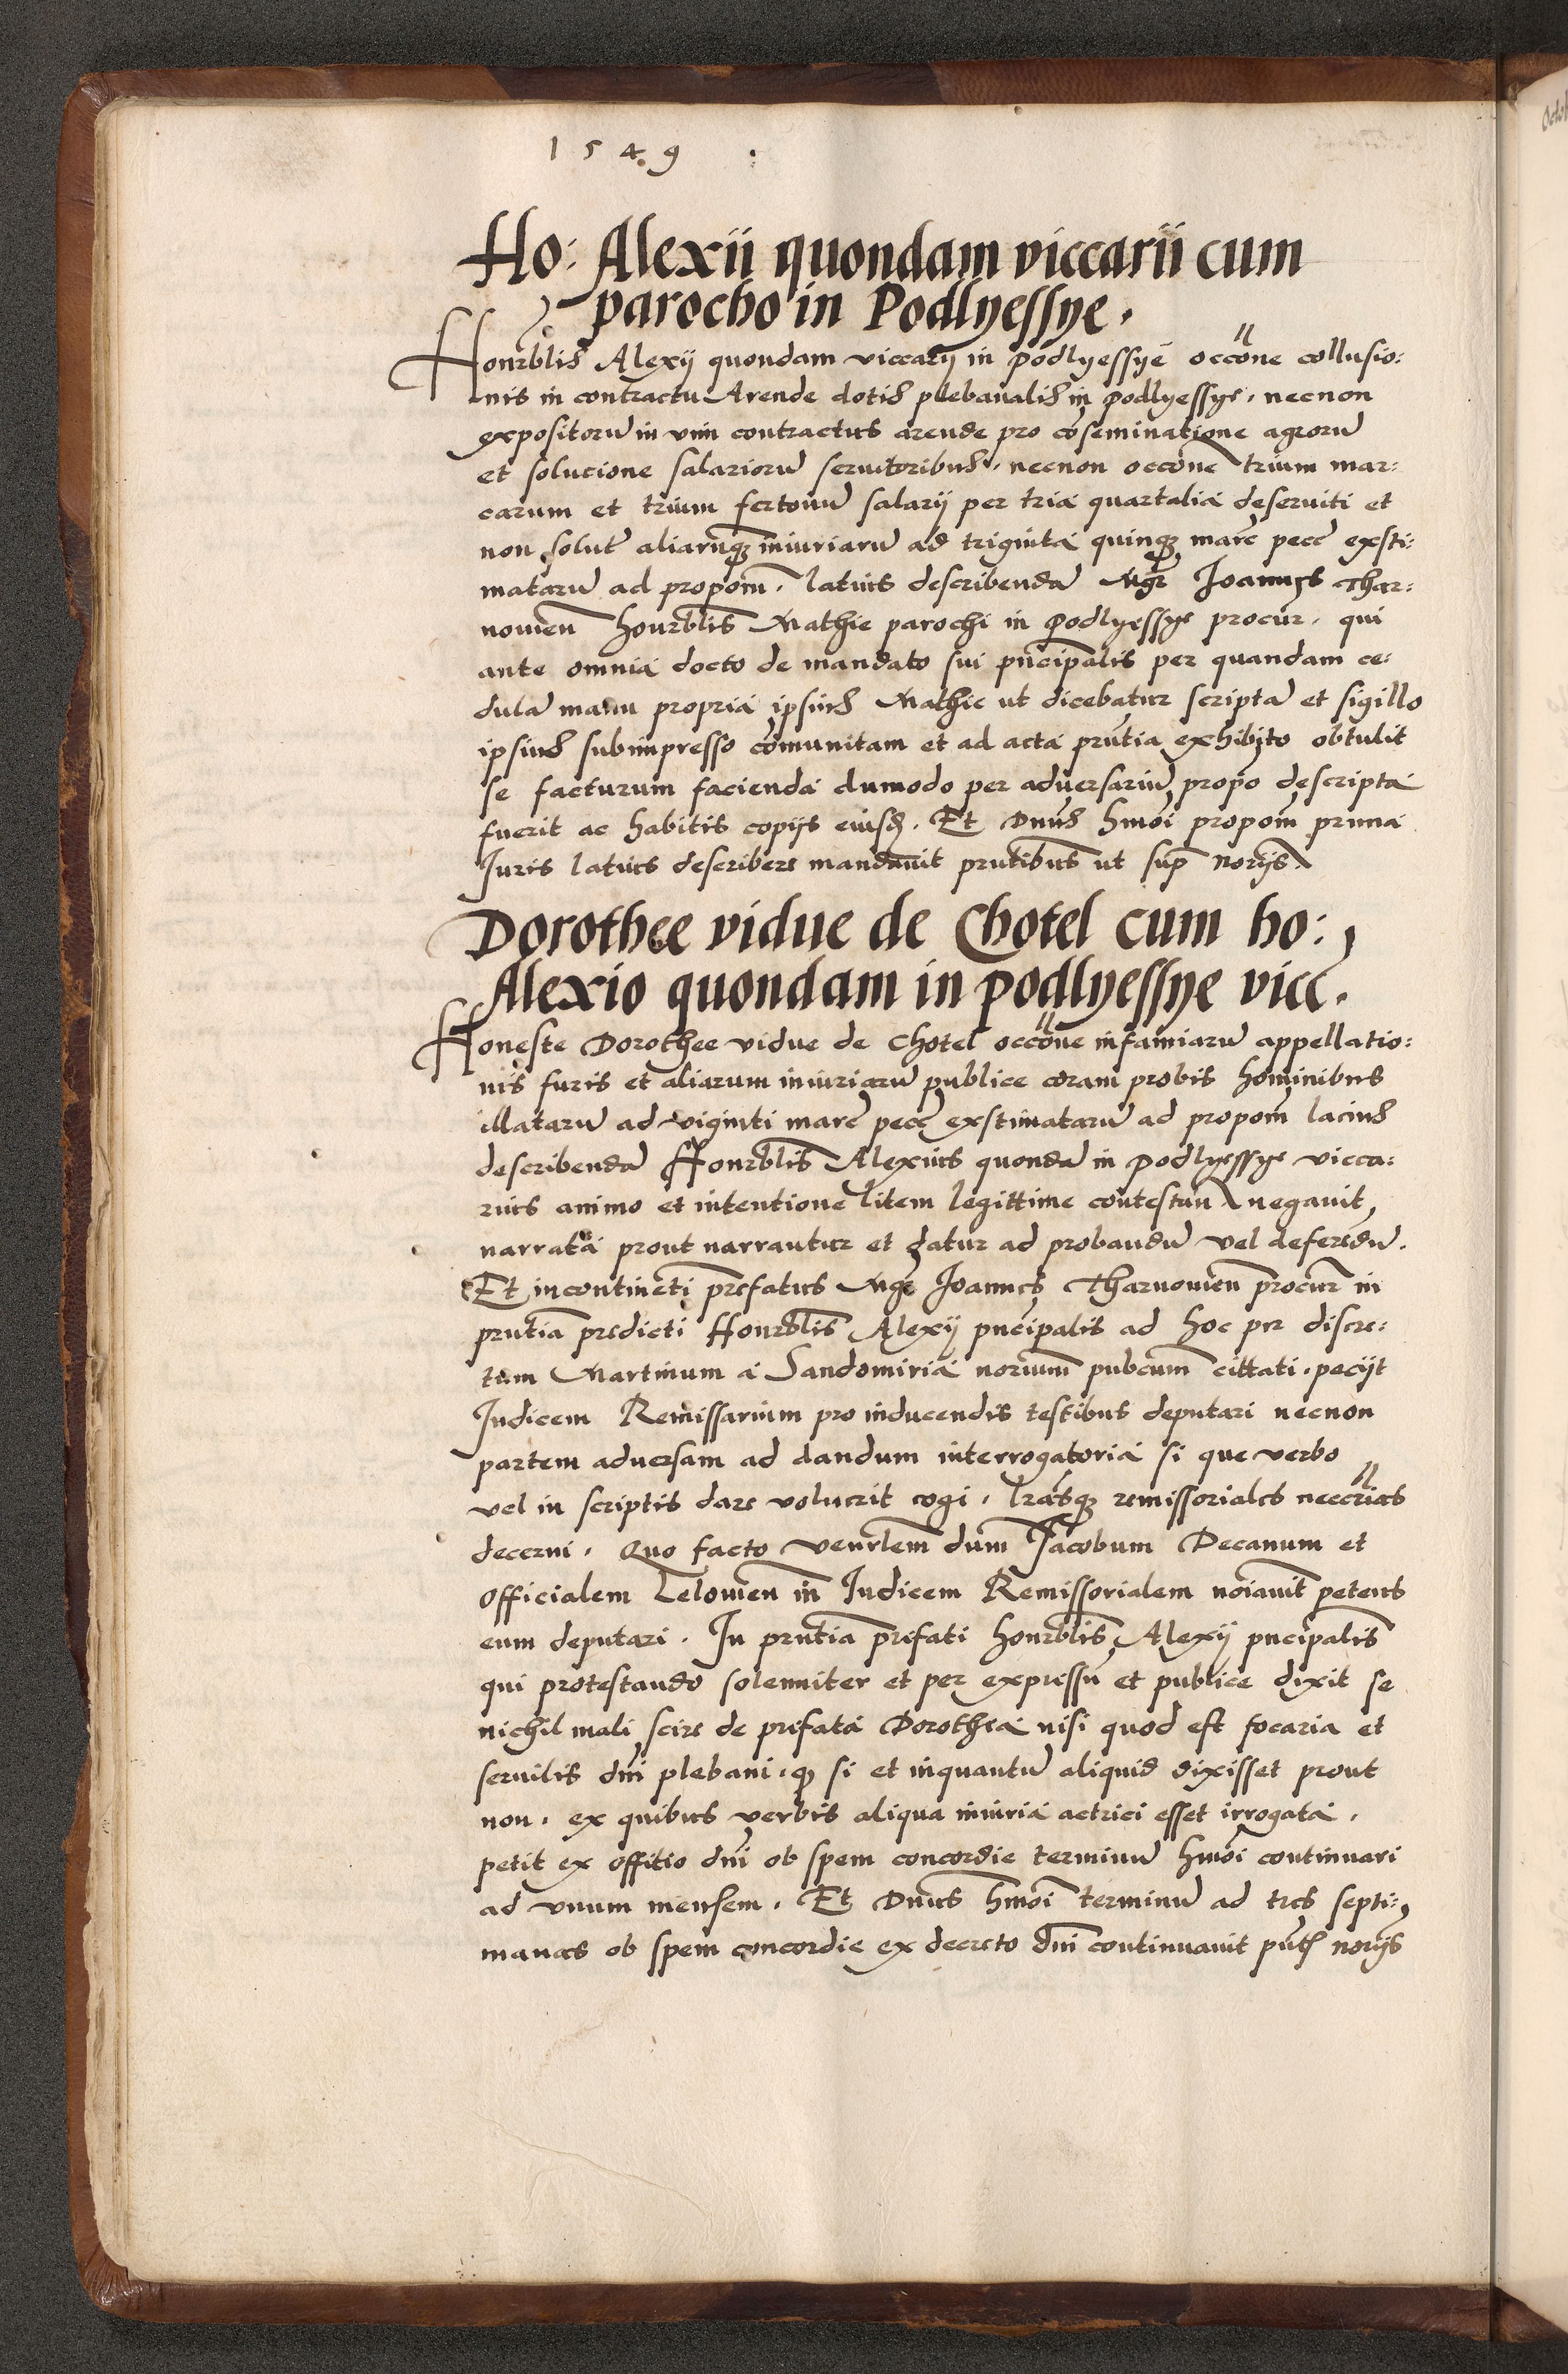 1549
Ho: Alexii quondam viccarii cum
parocho in Podlyessye.
Honrblis Alexij quondam viccarij in podlyessye occone collusio:
nis in contractu Arende dotis plebanalis in podlyessye, necnon
expositoru in vim contractus arende pro coseminatione agroru
et solucione salarioru servitoribus, necnon occone trium mar:
carum et trium fertonu salarij per tria quartalia deserviti et
non solut aliaruq iniuriaru ad triginta quinq marc pecc exsti:
mataru ad propom, latius describenda Mgr Joannes Thar:
nowien honrblis Mathie parochi in podlyessye procur, qui
ante omnia docto de mandato sui pncipalis per quandam ce:
dula manu propria ipsius Mathie ut dicebatur scripta et sigillo
ipsius subimpresso comunitam et ad acta prntia exhibito obtulit
se facturum facienda dumodo per adversariu propo descripta
fuerit ac habitis copijs eiusd. Et Dnus hmoi propom prima
Juris latius describere mandavit prntibus ut sup norijs.
Dorothee vidue de Chotel cum ho:
Alexio quondam in podlyessye vicc.
Honeste Dorothee vidue de Chotel occone infamiaru appellatio:
nis furis et aliarum iniuriaru publice coram probis hominibus
illataru ad viginti marc pecc exstimataru ad propom lacius
describenda Honrblis Alexius quonda in podlyessye vicca:
rius animo et intentione litem legittime contestan negavit
narrata prout narrantur et datur ad probandu vel deferedu.
Et incontineti prefatus Mgr Joannes Tharnowien procur in
prntia predicti Honrblis Alexij pncipalis ad hoc per discre:
tum Martinum a Sandomiria norium pubcum cittati, pecijt
Judicem Remissarium pro inducendis testibus deputari necnon
partem adversam ad dandum interrogatoria si que verbo
vel in scriptis dare voluerit cogi, lrasq remissoriales neccrias
decerni. Quo facto venrlem dum Jacobum Decanum et
Officialem Lelowien in Judicem Remissorialem noiavit petens
eum deputari. In prntia prefati honrblis Alexij pncipalis
qui protestando solenniter et per expressu et publice dixit se
nichil mali scire de prefata Dorothea nisi quod est focaria et
servilis dni plebani, q si et inquantu aliquid dixisset prout
non, ex quibus verbis aliqua iniuria actrici esset irrogata,
petit ex offitio dni ob spem concordie terminu hmoi continuari
ad vnum mensem. Et Dnus hmoi terminu ad tres septi:
manas ob spem concordie ex decreto dni continuavit pnt norijs